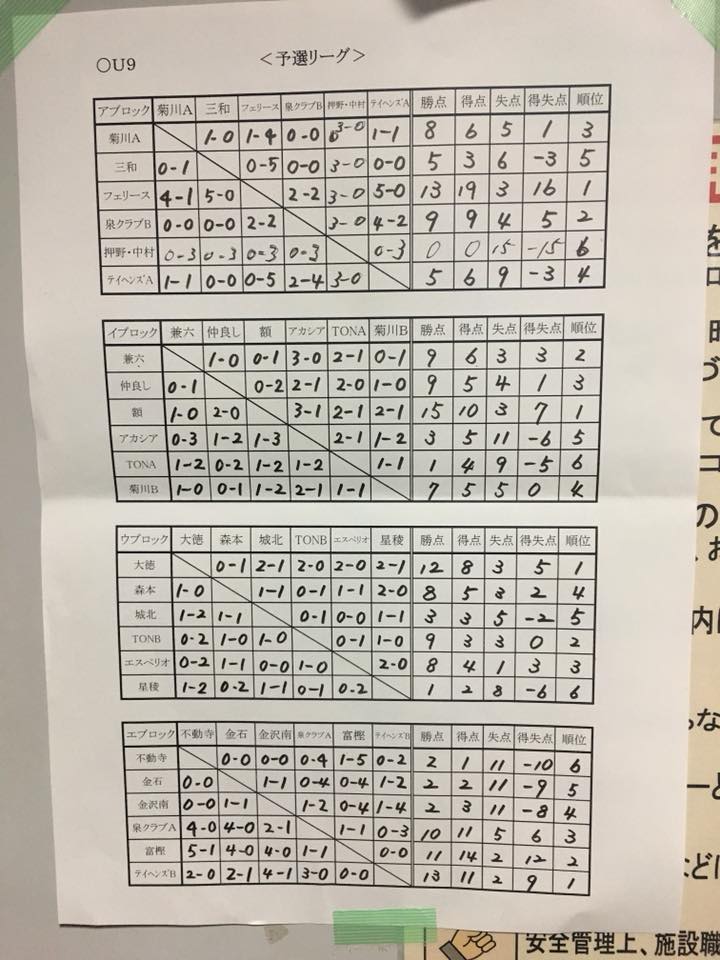 ○U9 ＜予選リーグ＞
アブロック 菊川A 三和 フェリース 泉クラブB 押野・中村 テイヘンズA 勝点 得点 失点 得失点 順位
菊川A 1-0 1-4 0-0 3-0 1-1 8 6 5 1 3
三和 0-1 0-5 0-0 3-0 0-0 5 3 6 -3 5
フェリース 4-1 5-0 2-2 3-0 5-0 13 19 3 16 1
泉クラブB 0-0 0-0 2-2 3-0 4-2 9 9 4 5 2
押野・中村 0-3 0-3 0-3 0-3 0-3 0 0 15 -15 6
テイヘンズA 1-1 0-0 0-5 2-4 3-0 5 6 9 -3 4
イブロック 兼六 仲良し 額 アカシア TONA 菊川B 勝点 得点 失点 得失点 順位
兼六 1-0 0-1 3-0 2-1 0-1 9 6 3 3 2
仲良し 0-1 0-2 2-1 2-0 1-0 9 5 4 1 3
額 1-0 2-0 3-1 2-1 2-1 15 10 3 7 1
アカシア 0-3 1-2 1-3 2-1 1-2 3 5 11 -6 5
TONA 1-2 0-2 1-2 1-2 1-1 1 4 9 -5 6
菊川B 1-0 0-1 1-2 2-1 1-1 7 5 5 0 4
ウブロック 大徳 森本 城北 TONB エスペリオ 星稜 勝点 得点 失点 得失点 順位
大徳 0-1 2-1 2-0 2-0 2-1 12 8 3 5 1
森本 1-0 1-1 0-1 1-1 2-0 8 5 3 2 4
城北 1-2 1-1 0-1 0-0 1-1 3 3 5 -2 5
TONB 0-2 1-0 1-0 0-1 1-0 9 3 3 0 2
エスペリオ 0-2 1-1 0-0 1-0 2-0 8 4 1 3 3
星稜 1-2 0-2 1-1 0-1 0-2 1 2 8 -6 6
エブロック 不動寺 金石 金沢南 泉クラブA 富樫 テイヘンズB 勝点 得点 失点 得失点 順位
不動寺 0-0 0-0 0-4 1-5 0-2 2 1 11 -10 6
金石 0-0 1-1 0-4 0-4 1-2 2 2 11 -9 5
金沢南 0-0 1-1 1-2 0-4 1-4 2 3 11 -8 4
泉クラブA 4-0 4-0 2-1 1-1 0-3 10 11 5 6 3
富樫 5-1 4-0 4-0 1-1 0-0 11 14 2 12 2
テイヘンズB 2-0 2-1 4-1 3-0 0-0 13 11 2 9 1
安全管理上、施設職